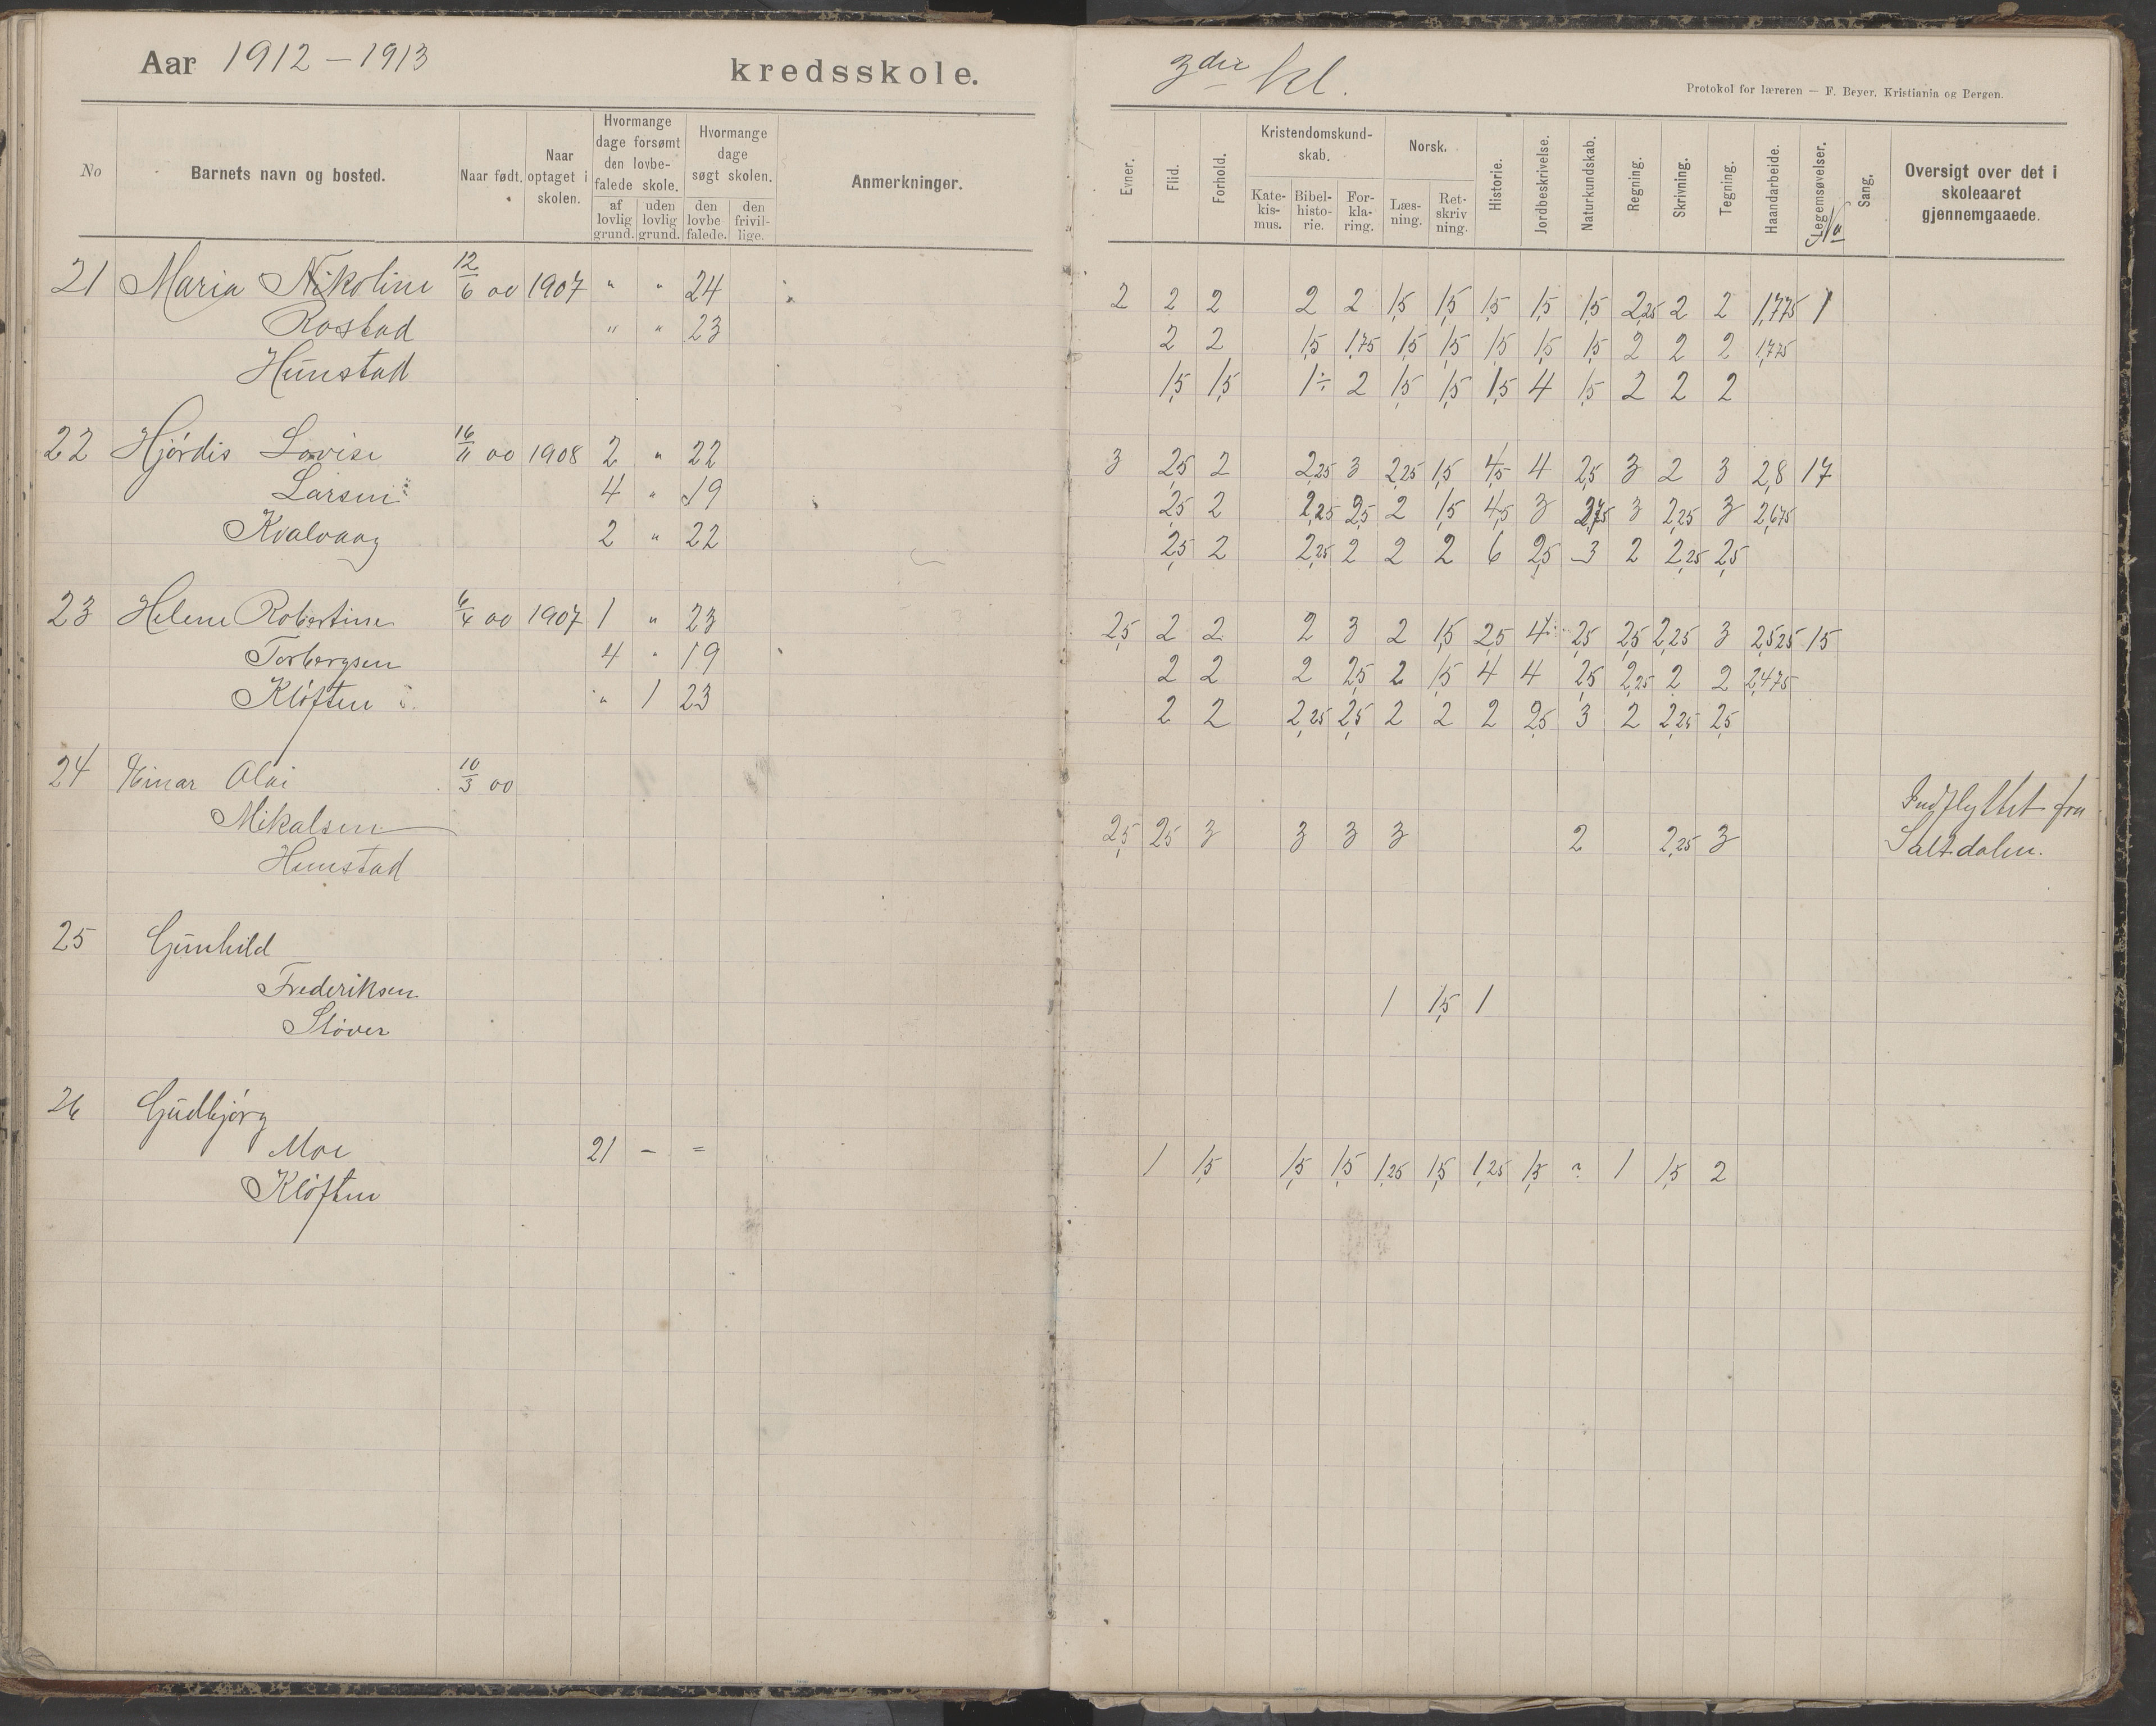 Aar 1912 – 1913 kredsskole. 3die kl.
Protokol for læreren — F. Beyer, Kristiania og Bergen.
No Barnets navn og bosted. Naar født. Naar optaget i skolen. Hvormange dage forsømt den lovbefalede skole. af lovlig grund. uden lovlig grund. Hvormange dage søgt skolen. den lovbefalede. den frivillige. Anmerkninger.
Evner. Flid. Forhold. Kristendomskundskab. Katekismus. Bibelhistorie. Forklaring. Norsk. Læsning. Retskrivning. Historie. Jordbeskrivelse. Naturkundskab. Regning. Skrivning. Tegning. Haandarbeide. Legemsøvelser. No Sang. Oversigt over det i skoleaaret gjennemgaaede.
21 Maria Nikoline 12/6 00 1907 " " 24 2 2 2 2 2 1,5 1,5 1,5 1,5 1,5 2,25 2 2 1,775 1
Rostad " " 23 2 2 1,5 1,75 1,5 1,5 1,5 1,5 1,5 2 2 2 1,775
Hunstad 1,5 1,5 1÷ 2 1,5 1,5 1,5 4 1,5 2 2 2
22 Hjørdis Lovise 16/11 00 1908 2 " 22 3 2,5 2 2,25 3 2,25 1,5 4,5 4 2,5 3 2 3 2,8 17
Larsen 4 " 19 2,5 2 2,25 2,5 2 1,5 4,5 3 2,75 3 2,25 3 2,675
Kvalvaag 2 " 22 2,5 2 2,25 2 2 2 6 2,5 3 2 2,25 2,5
23 Helene Robertine 6/4 00 1907 1 " 23 2,5 2 2 2 3 2 1,5 2,5 4 2,5 2,5 2,25 3 2,525 15
Torbergsen 4 " 19 2 2 2 2,5 2 1,5 4 4 2,5 2,25 2 2 2,475
Kløften " 1 23 2 2 2,25 2,5 2 2 2 2,5 3 2 2,25 2,5
24 Einar Olai 10/3 00 Indflyttet fra
Mikalsen 2,5 2,5 3 3 3 3 2 2,25 3 Saltdalen.
Hunstad
25 Gunhild
Frederiksen 1 1,5 1
Støver
26 Gudbjørg
Moe 21 – = 1 1,5 1,5 1,5 1,25 1,5 1,25 1,5 ? 1 1,5 2
Kløften